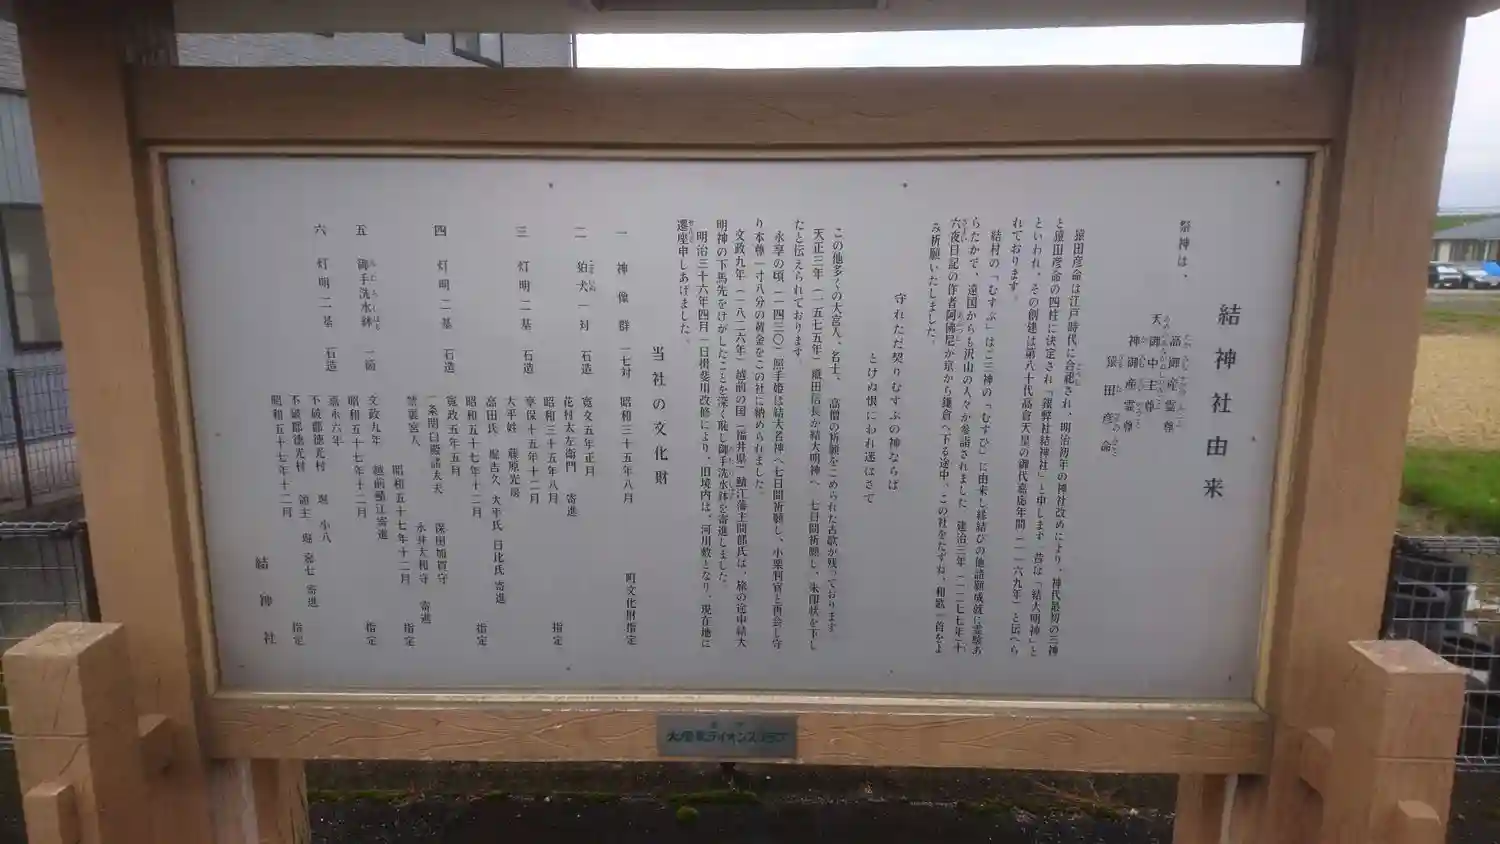 結神社由来
祭神は、
高御産霊尊
天御中主尊
神御産霊尊
猿田彦命
猿田彦命は江戸時代に合祀され、明治初年の神社改めにより、神代最初の三神
と猿田彦命の四柱に決定され「県弊社結神社」と申します 昔は「結大明神」と
といわれ、その創建は第八十代高倉天皇の御代嘉應年間(一一六九年)と伝へら
れております。
結村の「むすぶ」はご三神の「むすひ」に由来し縁結びの他諸願成就に霊験あ
らたかで、遠国からも沢山の人々が参詣されました 建治三年(一二七七年)十
六夜日記の作者阿佛尼が京から鎌倉へ下る途中、この社をたずね、和歌一首をよ
み祈願いたしました。
守れただ契りむすぶの神ならば
とけぬ恨にわれ迷はさで
この他多くの大宮人、名士、高僧の祈願をこめられた古歌が残っております
天正三年(一五七五年)織田信長が結大明神へ七日間祈願し、朱印状を下し
たと伝えられております。
永享の頃(一四三〇)照手姫は結大名神へ七日間祈願し、小栗判官と再会し守
り本尊一寸八分の黄金をこの社に納められました。
文政九年(一八二六年)越前の国(福井県)鯖江藩主間部氏は、旅の途中結大
明神の下馬先をけがしたことを深く恥し御手洗水鉢を寄進しました。
明治三十六年四月一日揖斐川改修により、旧境内は、河川敷となり、現在地に
遷座申しあげました。
当社の文化財
町文化財指定
一 神像群 一七対 昭和三十五年八月
二 狛犬 一対 石造 寛文五年正月
花村太左衛門 寄進
昭和三十五年八月 指定
三 灯明 二基 石造 享保十五年十二月
大平姓 藤原光房
高田氏 堀吉久 大平氏 日比氏 寄進
昭和五十七年十二月 指定
四 灯明 二基 石造 寛政五年五月
一条関白殿諸太夫 保田加賀守
禁裏宮人 永井大和守 寄進
昭和五十七年十二月 指定
五 御手洗水鉢 一個 文政九年 越前鯖江寄進
昭和五十七年十二月 指定
六 灯明 二基 石造 嘉永六年
不破郡徳光村 堀 小八
不破郡徳光村 領主 堀 寄進
昭和五十七年十二月 指定
結神社
大垣東ライオンズクラブ